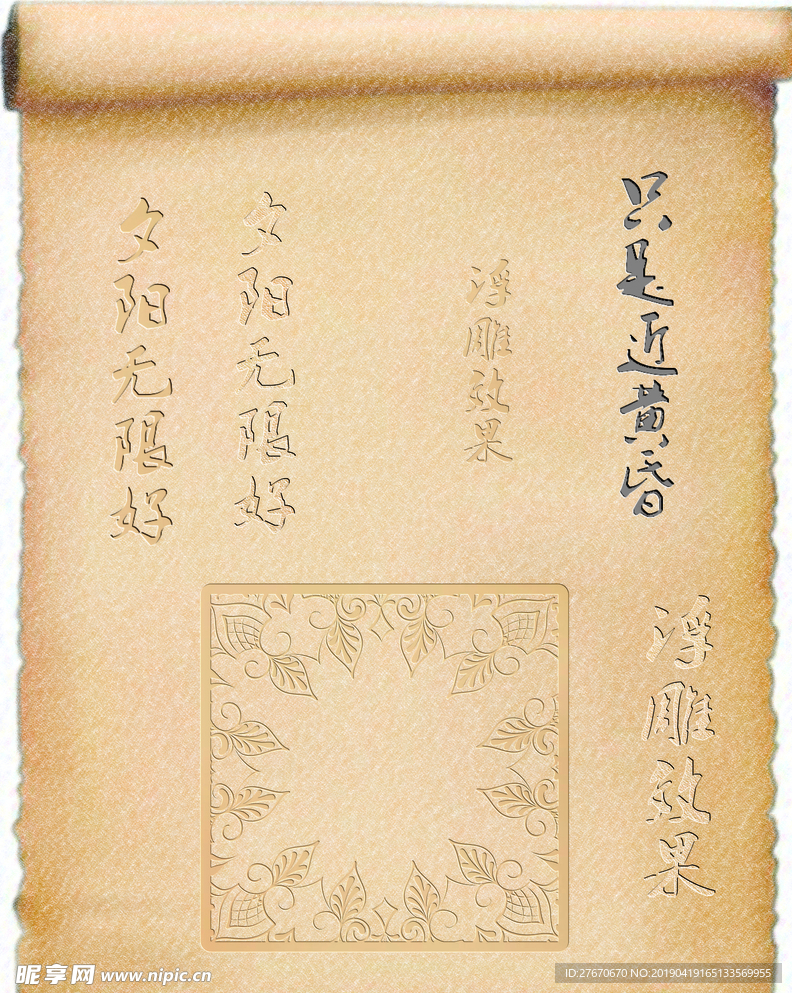 夕阳无限好
夕阳无限好
浮雕效果
只是近黄昏
浮雕效果
昵享网 www.nipic.cn
ID:27670670 NO:20190419165133569955